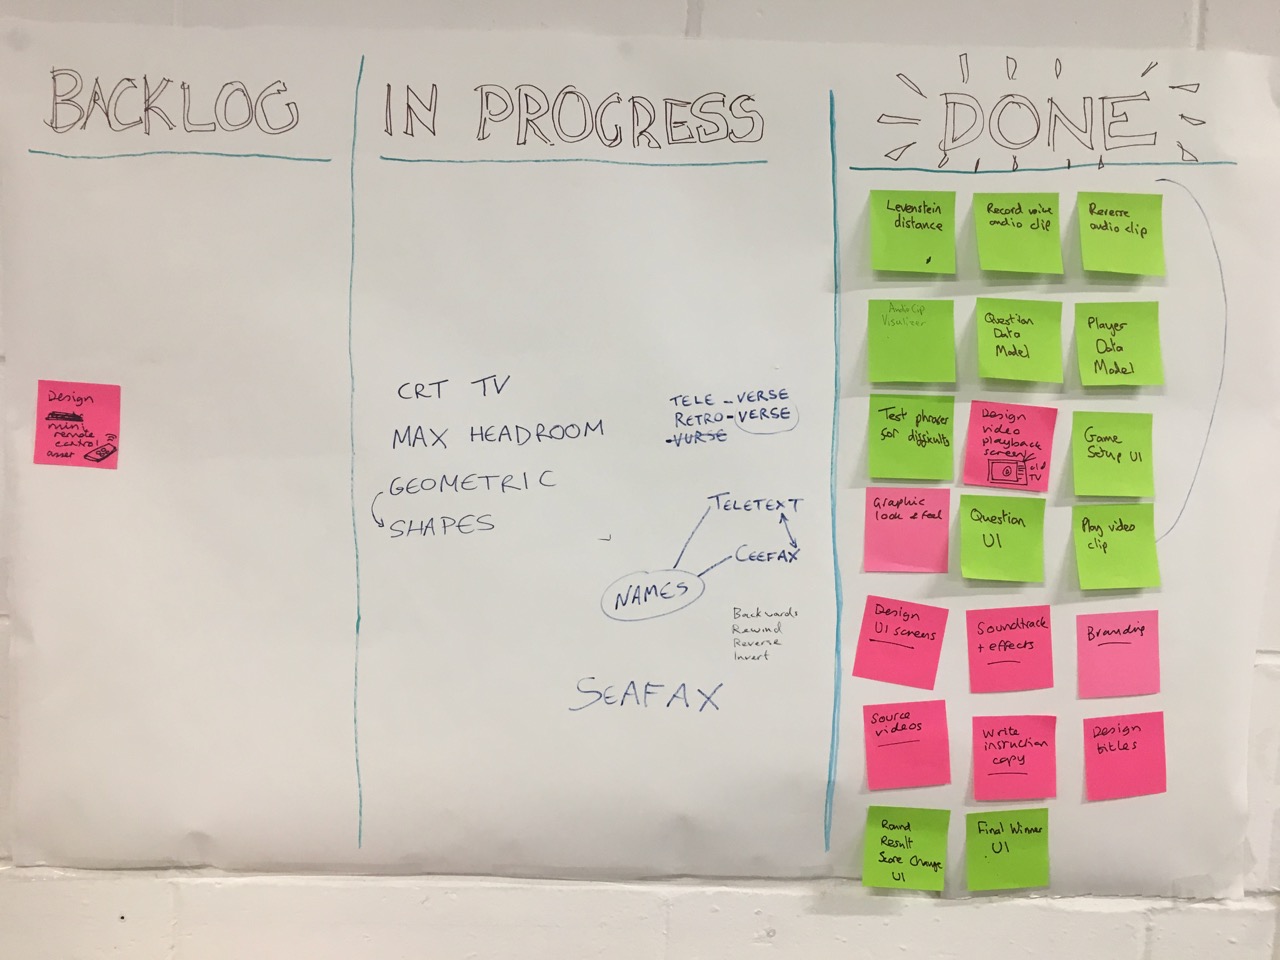 BACKLOG
IN PROGRESS
DONE
Design
mini
remote
control
asset
CRT TV
MAX HEADROOM
GEOMETRIC
SHAPES
TELE - VERSE
RETRO - VERSE
- VURSE
TELETEXT
CEEFAX
NAMES
Backwards
Rewind
Reverse
Invert
SEAFAX
Levenstein
distance
Record voice
audio clip
Reverse
audio clip
Audio Clip
Visulizer
Question
Data
Model
Player
Data
Model
Test phrases
for difficulty
Design
video
playback
screen
old
TV
Game
Setup UI
Graphic
look & feel
Question
UI
Play video
clip
Design
UI screens
Soundtrack
+ effects
Branding
Source
videos
Write
instruction
copy
Design
titles
Round
Result
Score Change
UI
Final Winner
UI